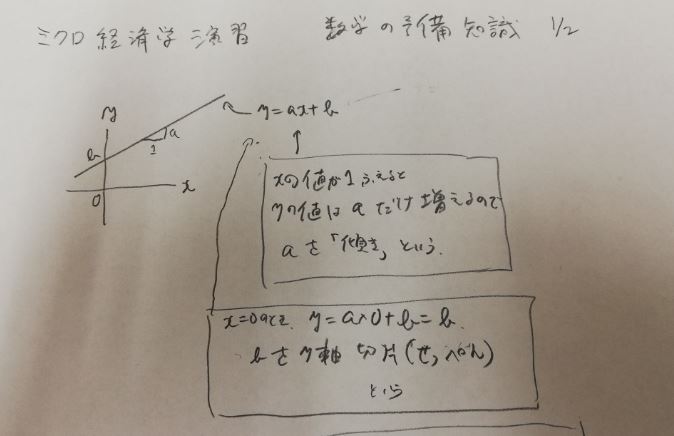 ミクロ経済学演習 数学の予備知識 1/2
y
y=ax+b
a
1
b
0
x
xの値が1ふえると
yの値はaだけ増えるので
aを「傾き」という.
x=0のとき. y=a×0+b=b.
bをy軸切片(せっぺん)
という